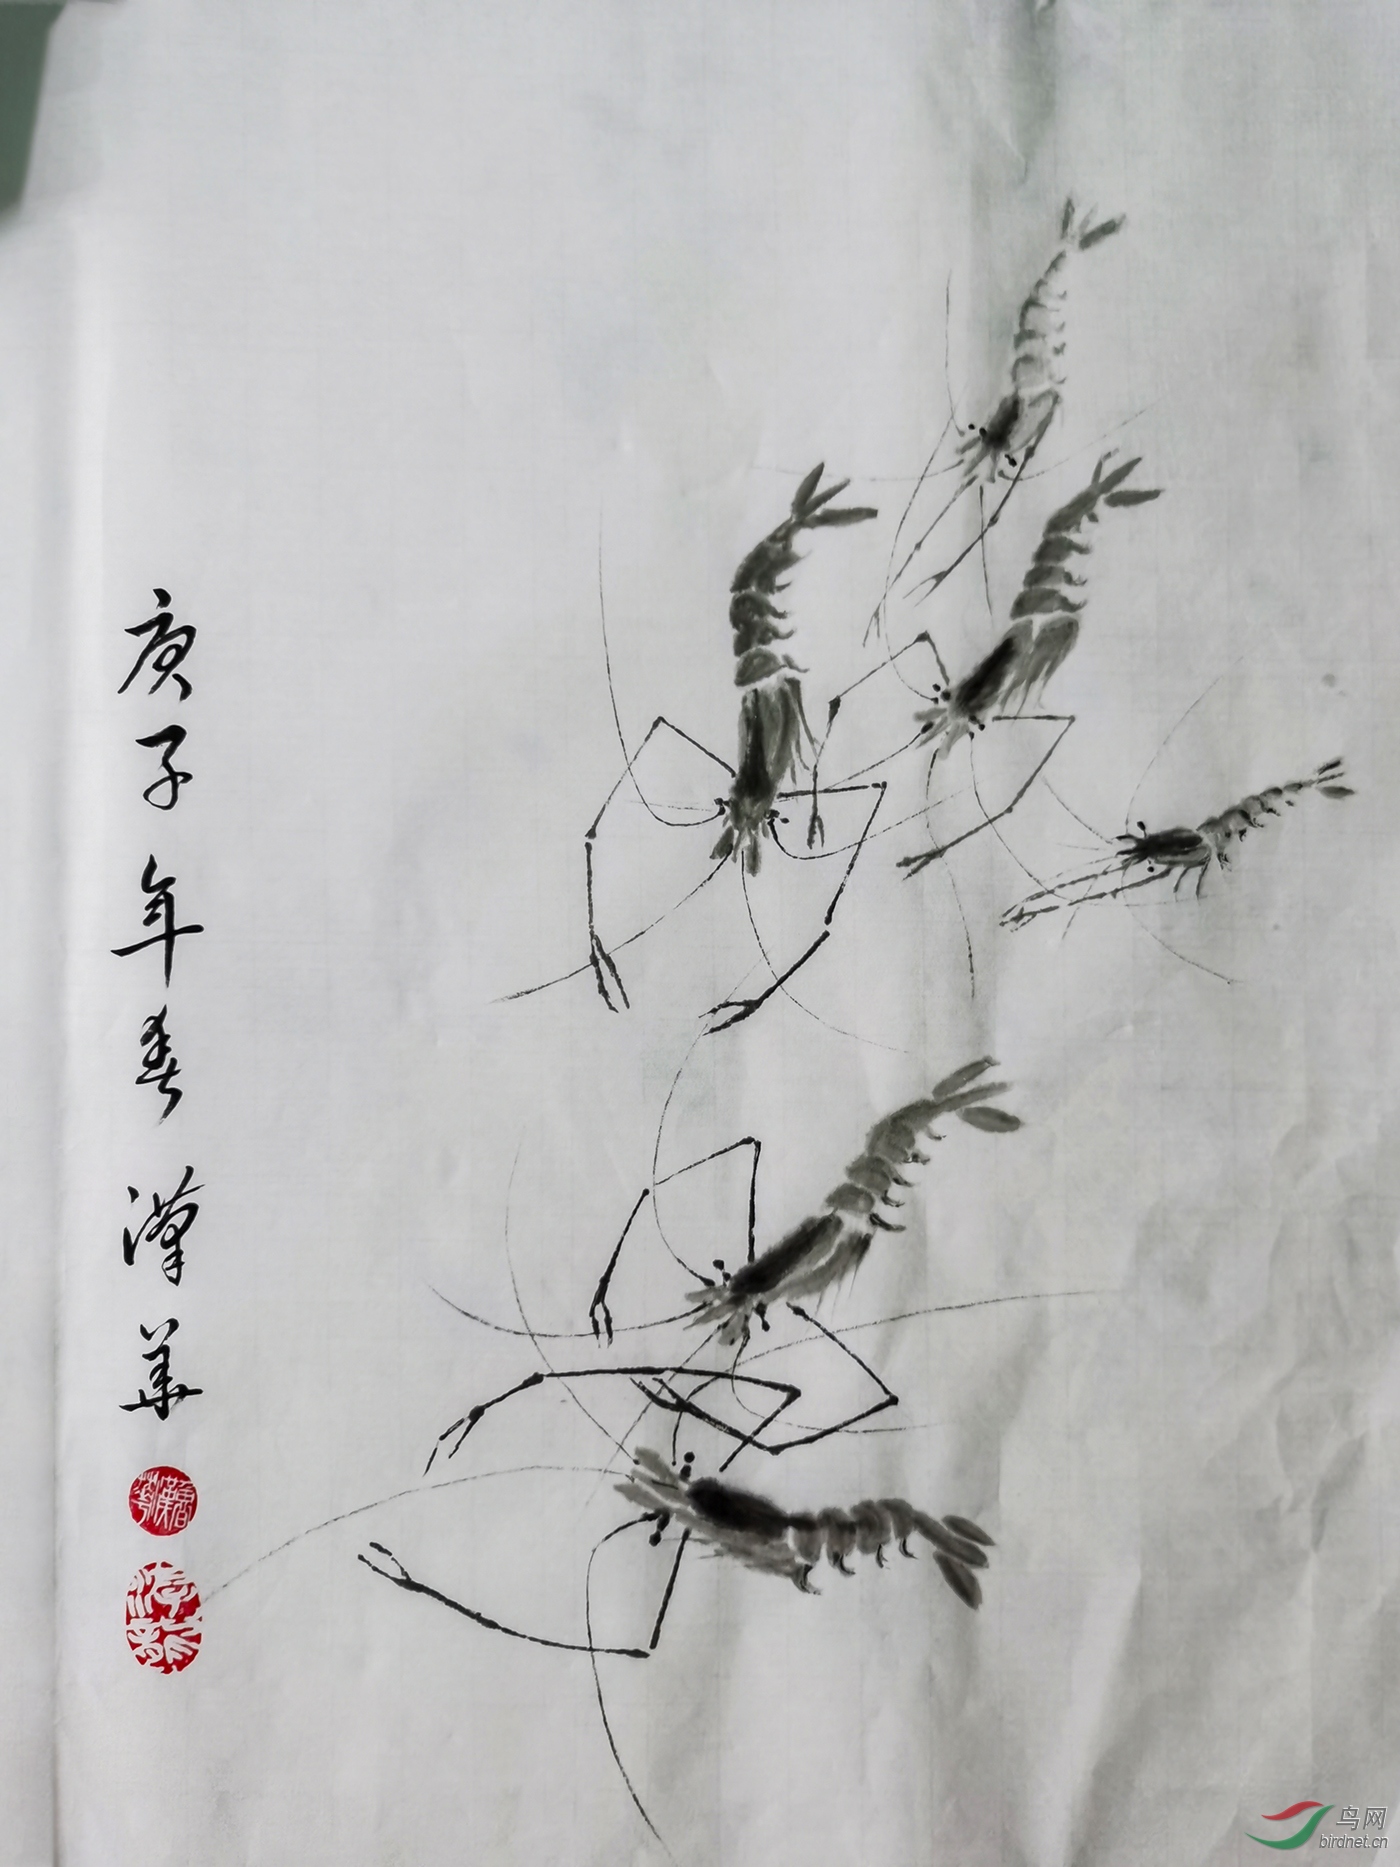 庚子年春 漢華
鸟网
birdnet.cn